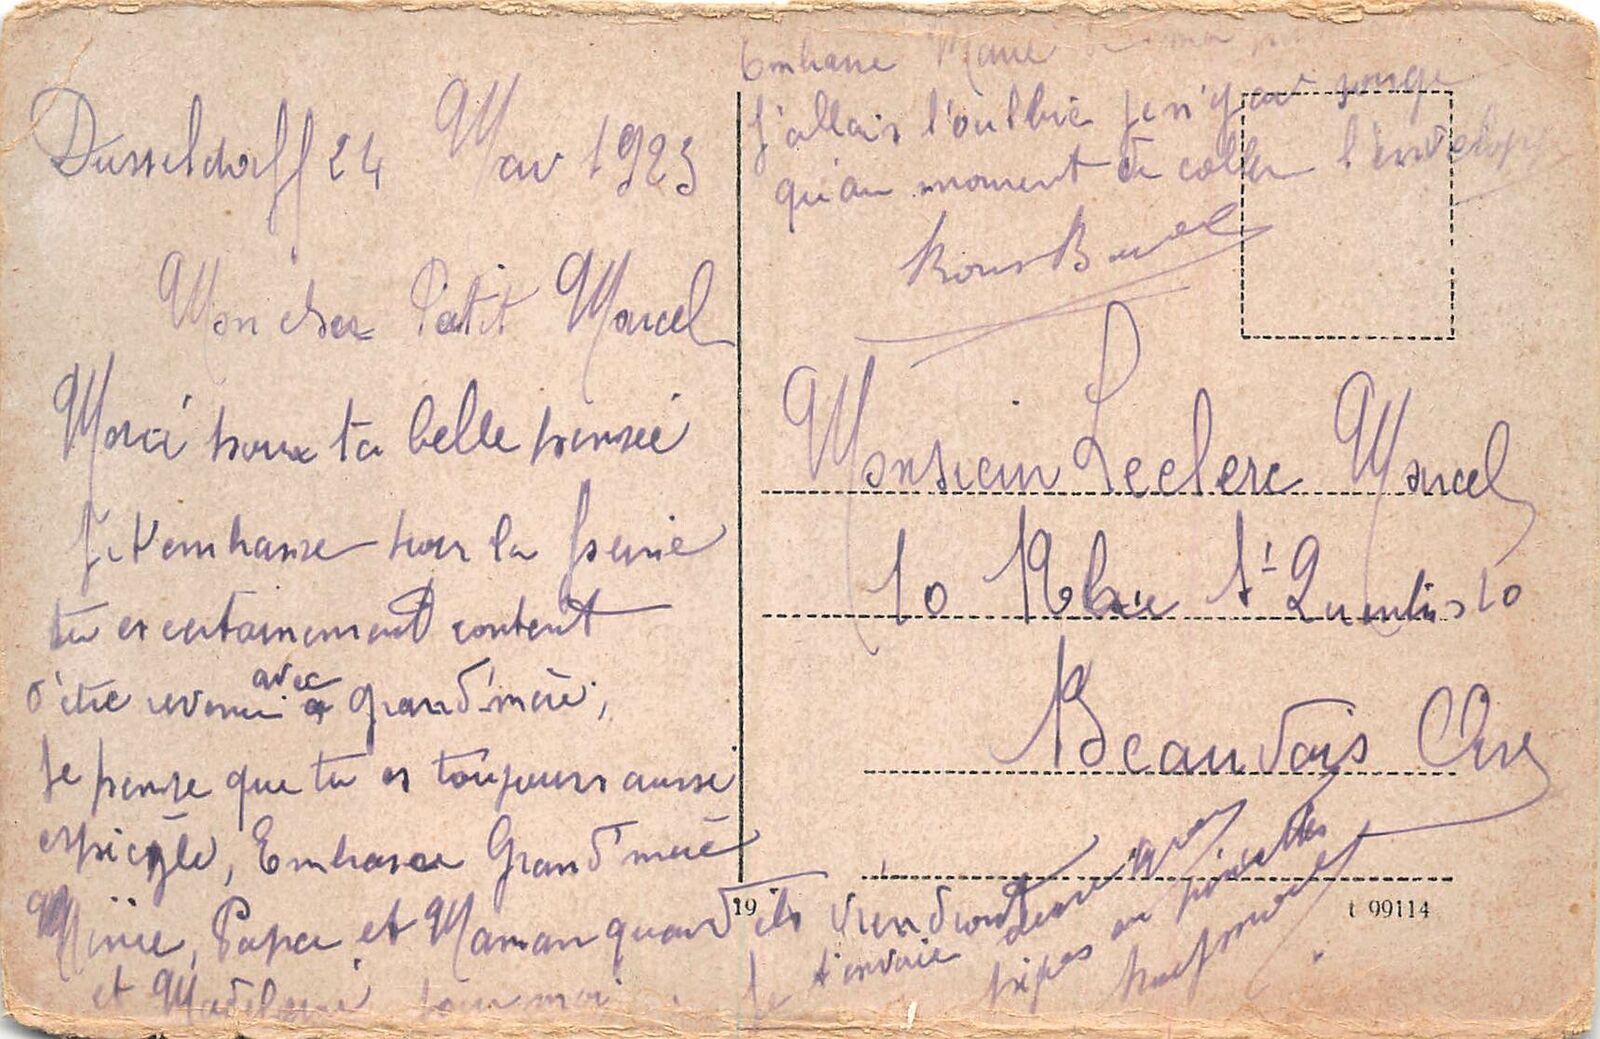 Dusseldorff 24 Mai 1923
Mon cher Petit Marcel
Merci pour ta belle pensée
Je t'embrasse pour la peine
tu es certainement content
d'être revenu avec à Grand'mère,
Je pense que tu es toujours aussi
espiègle, Embrasse Grand'mère
Papa et Maman quand ils viendront
et Madeleine pour moi. Je
t'envoie deux
Embrasse
J'allais l'oublié je n'y ai songé
qu'au moment de coller l'enveloppe
Monsieur Leclerc Marcel
10 Rue St Quentin 10
Beauvais Oise
19
t 99114